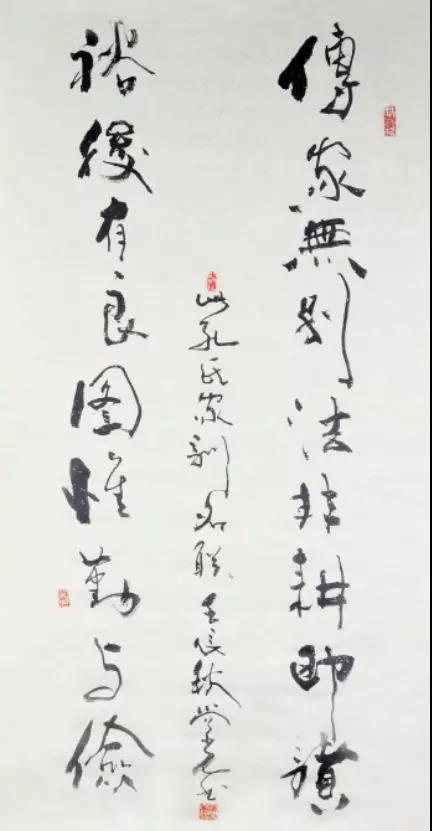 傳家無別法非耕即讀
此孔氏家訓名聯 壬辰秋
裕後有良图惟勤与儉